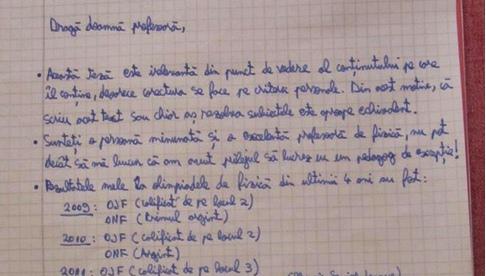 Dragă doamnă profesoară,
• Această teză este irelevantă din punct de vedere al conținutului pe care
îl conține, deoarece corectura se face pe criterii personale. Din acest motiv, că
scriu acest text sau chiar aș rezolva subiectele este aproape echivalent.
• Sunteți o persoană minunată și o excelentă profesoară de fizică, nu pot
decât să mă bucur că am avut prilejul să lucrez cu un pedagog de excepție!
• Rezultatele mele la olimpiadele de fizică din ultimii 4 ani au fost:
2009: OJF (calificat de pe locul 2)
ONF (Premiul argint)
2010: OJF (calificat de pe locul 2)
ONF (Argint)
2011: OJF (calificat de pe locul 3)